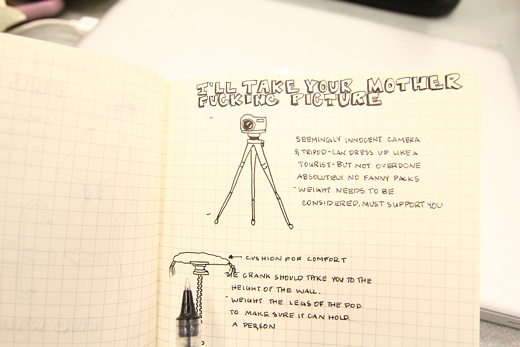 I'LL TAKE YOUR MOTHER
FUCKING PICTURE
SEEMINGLY INNOCENT CAMERA
& TRIPOD - CAN DRESS UP LIKE A
TOURIST - BUT NOT OVERDONE
ABSOLUTELY NO FANNY PACKS
- WEIGHT NEEDS TO BE
CONSIDERED, MUST SUPPORT YOU
CUSHION FOR COMFORT
THE CRANK SHOULD TAKE YOU TO THE
HEIGHT OF THE WALL.
- WEIGHT THE LEGS OF THE POD
TO MAKE SURE IT CAN HOLD
A PERSON